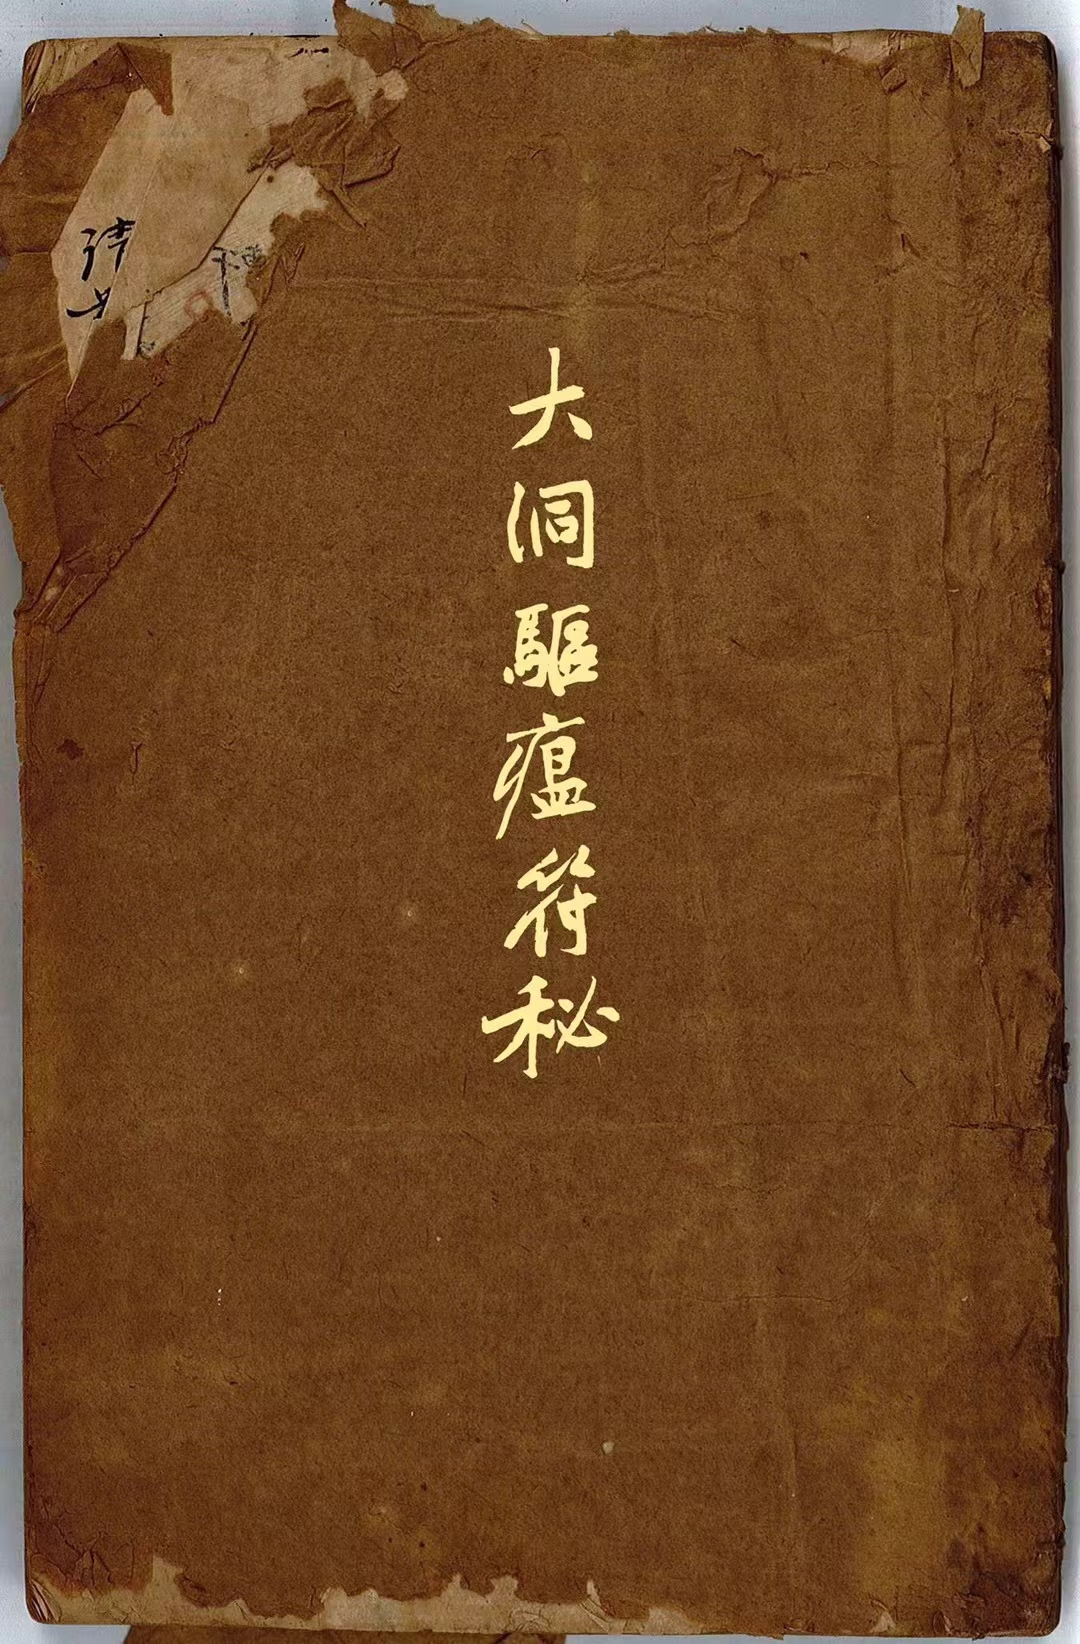 大洞驅瘟符秘